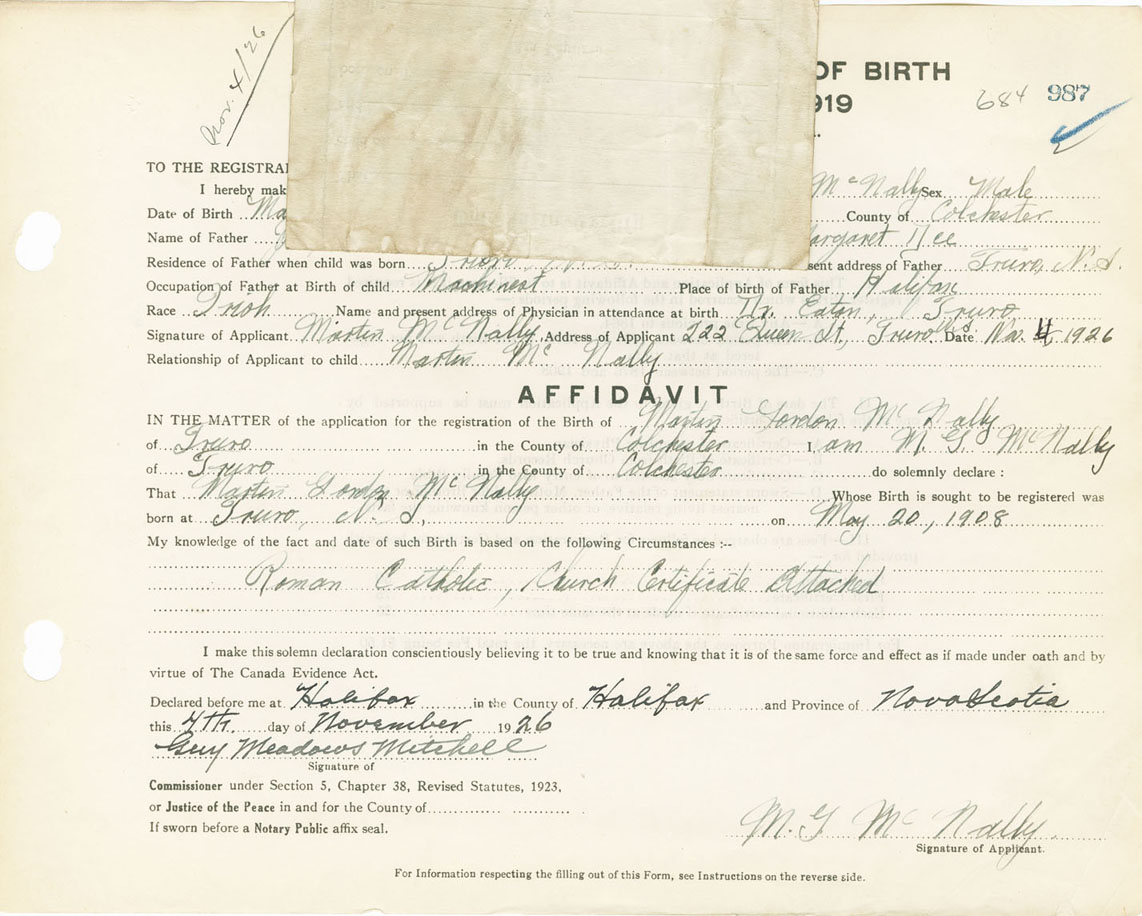 Nov. 4/26
OF BIRTH
684 987
919
TO THE REGISTRA
I hereby mak McNally Sex Male
Date of Birth Ma County of Colchester
Name of Father argaret Nee
Residence of Father when child was born Truro, N.S. sent address of Father Truro, N.S.
Occupation of Father at Birth of child Machinest Place of birth of Father Halifax
Race Irish Name and present address of Physician in attendance at birth Dr. Eaton, Truro
Signature of Applicant Martin McNally Address of Applicant 222 Queen St, Truro N.S. Date Nov. 4, 1926
Relationship of Applicant to child Martin Mc Nally
AFFIDAVIT
IN THE MATTER of the application for the registration of the Birth of Martin Gordon McNally
of Truro in the County of Colchester I, am M. G. McNally
of Truro in the County of Colchester do solemnly declare :
That Martin Gordon McNally Whose Birth is sought to be registered was
born at Truro, N.S. on May 20, 1908
My knowledge of the fact and date of such Birth is based on the following Circumstances :--
Roman Catholic, Church Certificate Attached
I make this solemn declaration conscientiously believing it to be true and knowing that it is of the same force and effect as if made under oath and by
virtue of The Canada Evidence Act.
Declared before me at Halifax in the County of Halifax and Province of Nova Scotia
this 4th. day of November 1926
Guy Meadows Mitchell
Signature of
Commissioner under Section 5, Chapter 38, Revised Statutes, 1923,
or Justice of the Peace in and for the County of
If sworn before a Notary Public affix seal.
M. G McNally.
Signature of Applicant.
For Information respecting the filling out of this Form, see Instructions on the reverse side.